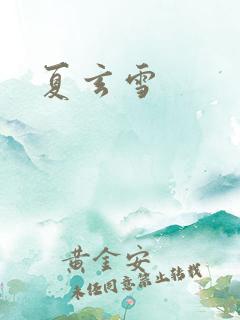 夏玄雪
黄金安
未经同意禁止转载